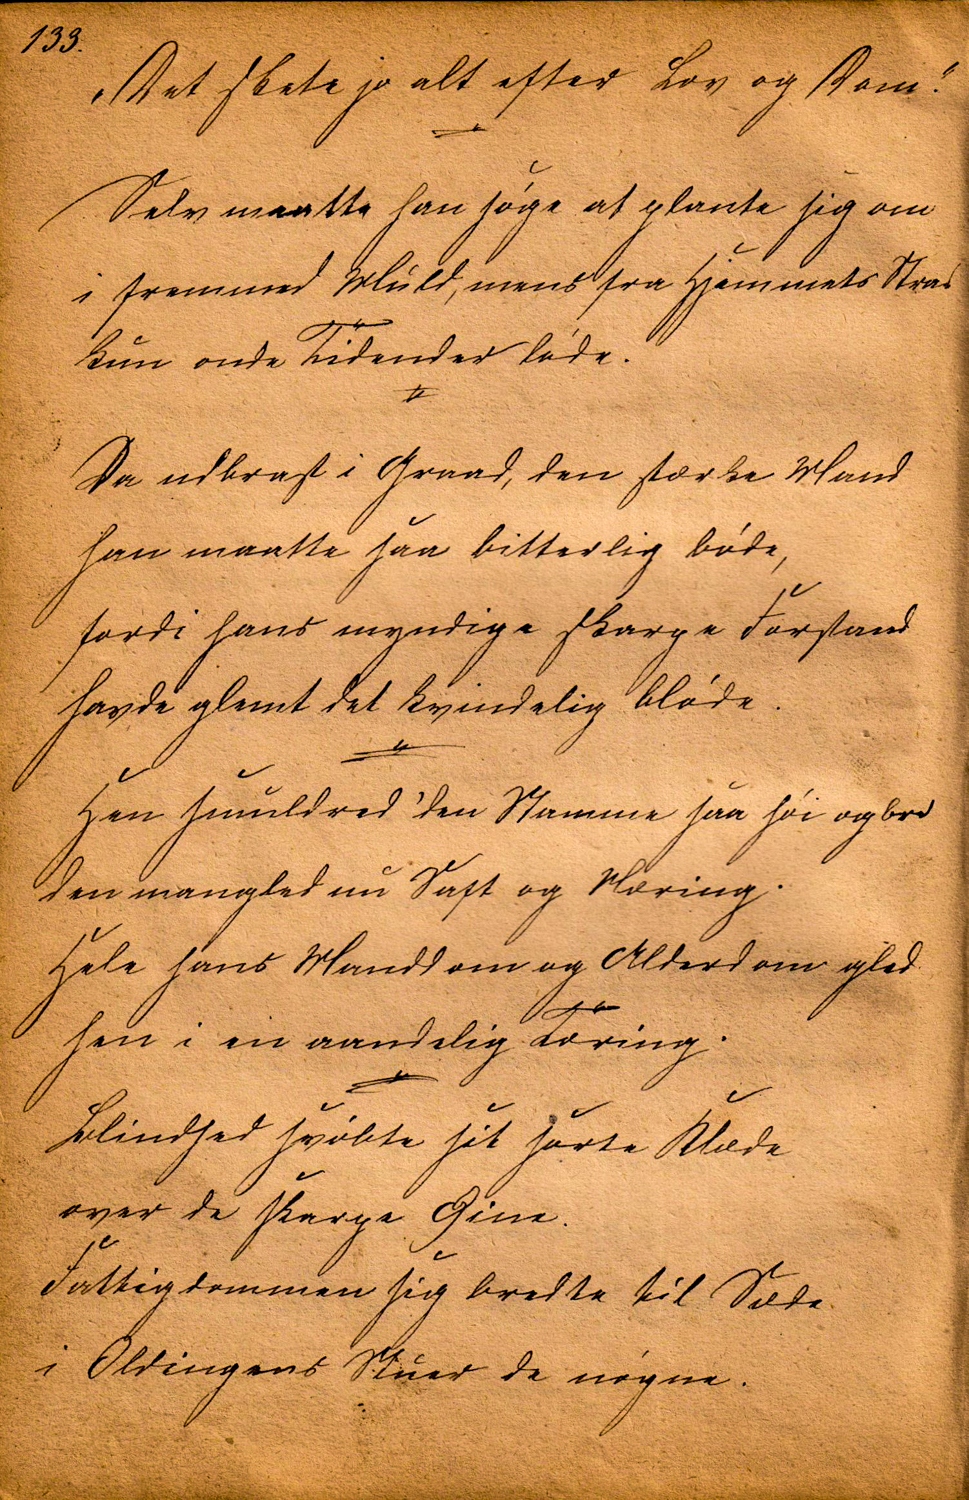 133.
"Det skete jo alt efter Lov og Dom".
Selv maatte han søge at plante sig om
i fremmed Muld, mens fra Hjemmets
kun onde Tidender løde.
Da udbrast i Graad, den stærke Mand
han maatte saa bitterlig bøde,
fordi hans myndige skarpe Forstand
havde glemt det kvindelig bløde.
Hen smuldred' den Stamme saa høi og bred
den mangled nu Saft og Næring.
Hele hans Manddom og Alderdom gled
hen i en aandelig Tæring.
Blindhed svøbte sit sorte Klæde
over de skarpe Øine.
Fattigdommen sig bredte til Sæde
i Oldingens Stuer de nøgne.